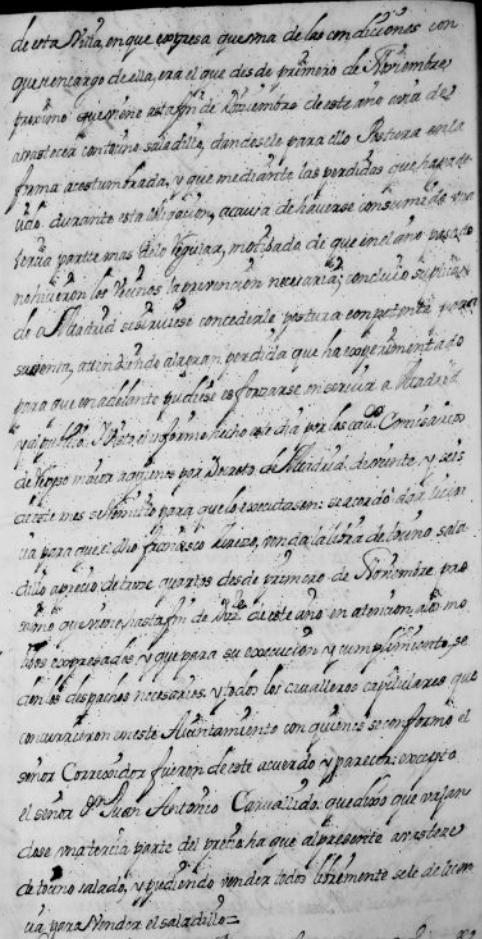 de esta Villa, en que expresa que una de las condiciones con
que se encargo de ella, era el que desde primero de Noviembre
proximo que viene asta fin de Diziembre de este año avia de
avastecer con tozino saladillo, dandosele para ello Postura en la
forma acostumbrada, y que mediante las perdidas que ha pade
zido durante esta obligacion, a causa de haverse consumido una
terzia parte mas de lo regular, motibado de que en el año pasado
no hizieron los Vezinos la prevencion necesaria; concluio suplican
do a Madrid se sirviese concederle postura conpetente para
su venta, attendiendo a la gran perdida que ha experimentado
para que en adelante pudiese esforzarse en servir a Madrid
y al publico. Visto, el informe hecho este dia por los cavs Comisarios
de Repeso maior a quienes por Decreto de Madrid de veinte y seis
de este mes se remitio para que lo executasen: se acordo dar licen
zia para que el dho Francisco venda la libra de tozino sala
dillo a precio de treze quartos desde primero de Noviembre pro
ximo que viene, hasta fin de Dize de este año en atencion a los mo
tibos expresados, y que para su execucion y cumplimiento, se
den los despachos necesarios y todos los cavalleros capitulares que
concurrieron en este Aiuntamiento con quienes se conformo el
señor Correxidor fueron de este acuerdo y parecer: excepto
el señor Dn Juan Antonio Carvallido. que dixo que vajan
dose una tercia parte del precio ha que al presente avastece
de tozino salado, y pudiendo vender todos libremente se le de licen
zia para Vender el saladillo=